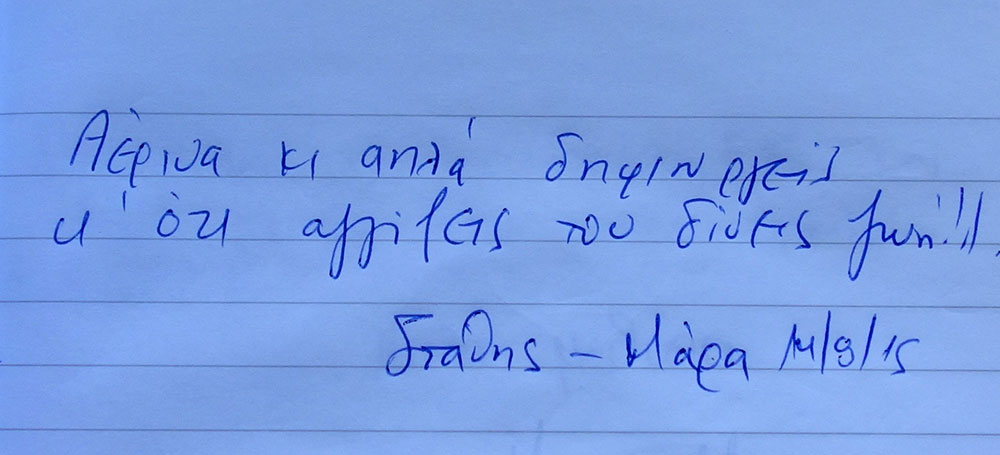 Αέρινα κι απλά δημιουργείς
κι ότι αγγίζεις του δίνεις ζωή!!!
Στάθης - Μάρα 14/9/15